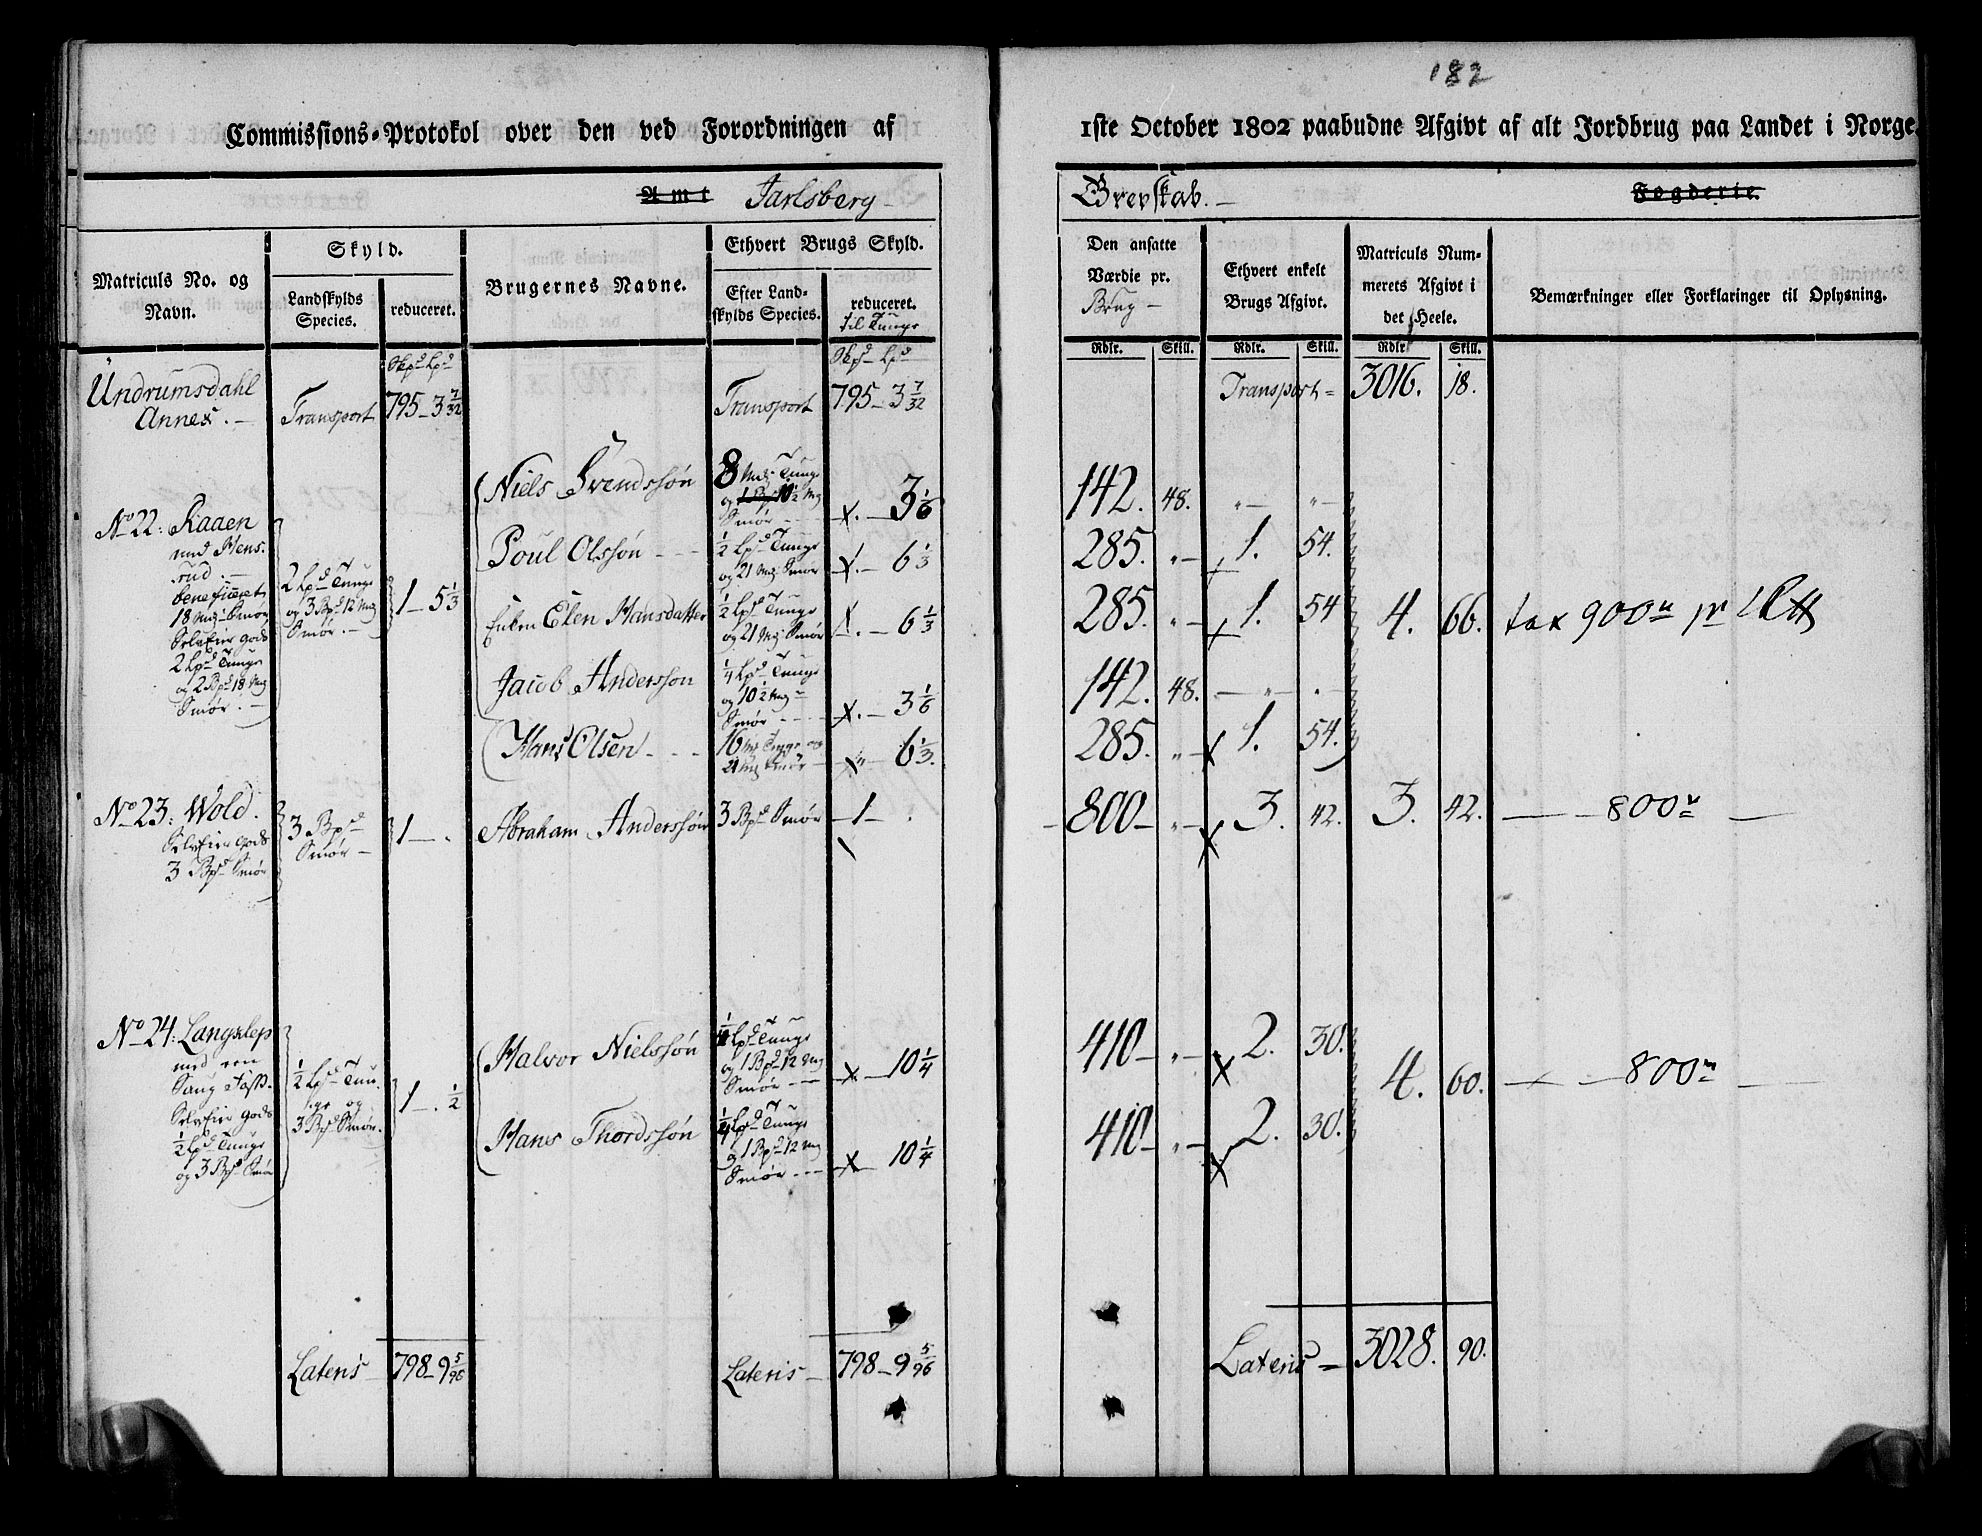 182
Commissions-Protokol over den ved Forordningen af 1ste October 1802 paabudne Afgivt af alt Jordbrug paa Landet i Norge.
Amt Jarlsberg Grevskab. Fogderie.
Matriculs No. og Navn.
Skyld.
Landskylds Species.
reduceret.
Brugernes Navne.
Ethvert Brugs Skyld.
Efter Landskylds Species.
reduceret. til Tunge
Den ansatte Værdie pr. Brug
Ethvert enkelt Brugs Afgivt.
Matriculs Nummerets Afgivt i det Heele.
Bemærkninger eller Forklaringer til Oplysning.
Rdlr. Skill. Rdlr. Skill. Rdlr. Skill.
Undrumsdahl Annex. Transport 795 - 3 7/32 Transport 795 - 3 7/32 Transport 3016. 18.
Niels Svendssøn 3 1/6 142. 48.
No 22: Raaen
Poul Olssøn 1/2 Lpd Tunge og 21 Mk Smør 6 1/3 285. 1. 54.
beneficeret
18 Mk Smør
Selveier Gods
2 Lpd Tunge
og 2 Bpd 18 Mk
Smør.
2 Lpd Tunge
og 3 Bpd 12 Mk
Smør.
1 - 5 1/3
Enken Elen Hansdatter 1/2 Lpd Tunge og 21 Mk Smør 6 1/3 285. 1. 54 4. 66. tax 900
Jacob Anderssøn 1/4 Lpd Tunge og 10 1/2 Mk Smør 3 1/6 142. 48.
Hans Olsen 6 1/3. 285. 1. 54.
No 23: Wold.
Selveier Gods
3 Bpd Smør
3 Bpd Smør
1
Abraham Anderssøn 3 Bpd Smør 1 800 3. 42. 3. 42. 800
No 24: Langslep
med
Selveier Gods
1/2 Lpd Tunge
og 3 Bpd Smør
1/2 Lpd Tunge og
3 Bpd Smør.
1 - 1/2
Halvor Nielssøn 1/4 Lpd Tunge og 1 Bpd 12 Mk Smør 10 1/4 410 2. 30. 4. 60. 800
Hans Thordssøn 1/4 Lpd Tunge og 1 Bpd 12 Mk Smør 10 1/4 410 2. 30.
Lateris 798 - 9 5/96 Lateris 798 - 9 5/96 Lateris 3028. 90.